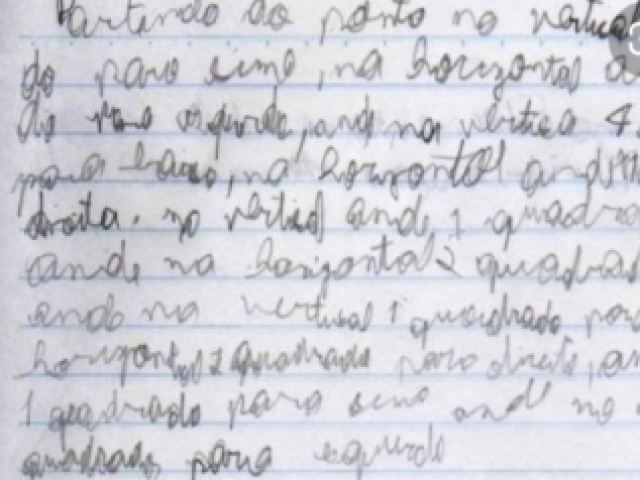 Partindo do ponto no vertical
do para cima, na horizontal a
do esquerda, and na vertica 4
para baixo, na horizontal and
direita. no vertical ande 1 quadra
ande na horizontal 2 quadrad
ando na vertical 1 quadrado par
horizontal 2 quadrado para direita, an
1 quadrado para cima and no
quadrado para esquerdo